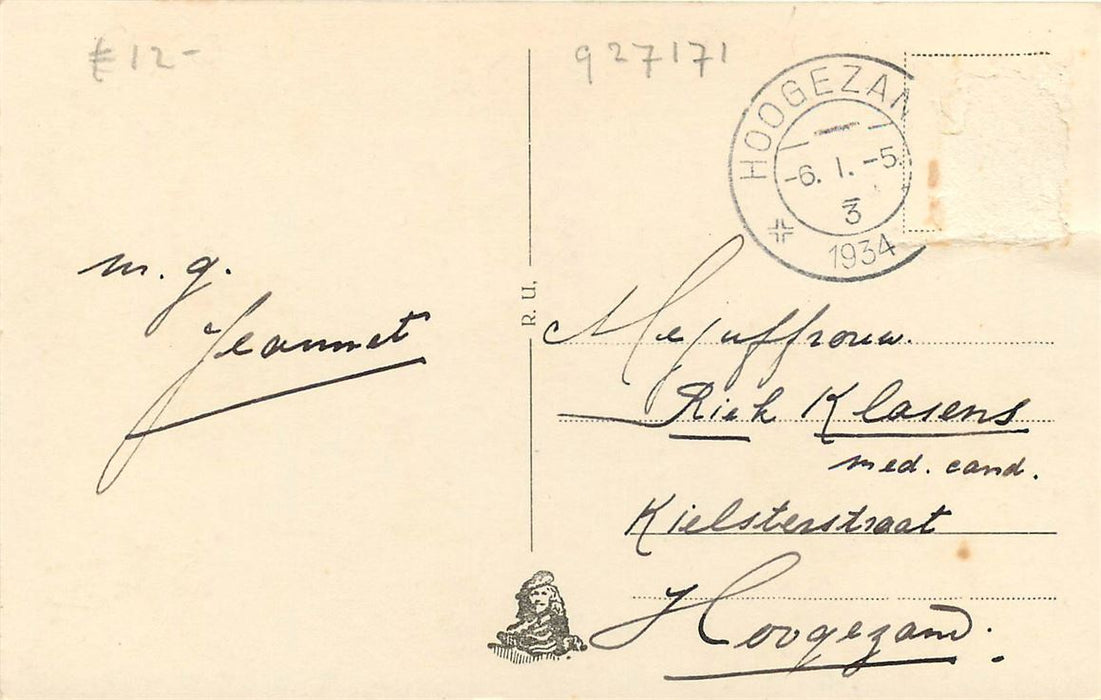 € 12-
927171
HOOGEZAN
-6. 1. -5.
3
1934
m. g.
Jeannet
R. U.
Mejuffrouw.
Riek Klasens
med. cand.
Kielsterstraat
Hoogezand.